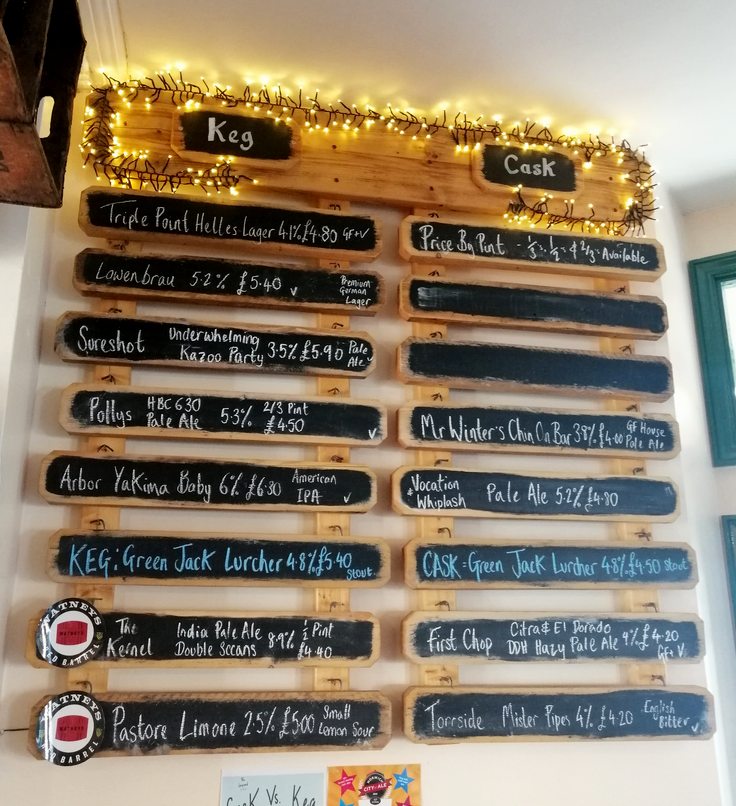 Keg
Triple Point Helles Lager 4.1% £4.80 GF+V
Lowenbrau 5.2% £5.40 V
Premium
German
Lager
Sureshot
Underwhelming
Kazoo Party
3.5% £5.90
Pale
Ale V
Pollys
HBC 630
Pale Ale
5.3%
2/3 Pint
£4.50
V
Arbor Yakima Baby 6% £6.30
American
IPA V
KEG: Green Jack Lurcher 4.8% £5.40
Stout
WATNEYS
WATNEYS
RED BARREL
The
Kernel
India Pale Ale
Double
8.9%
½ Pint
£4.40
WATNEYS
WATNEYS
RED BARREL
Pastore Limone 2.5% £5.00
Small
Lemon Sour
Cask
Price By Pint - ⅓s, ½s & ⅔s Available
Mr Winter's Chin On Bar 3.8% £4.00
GF House
Pale Ale
Vocation
Whiplash
Pale Ale 5.2% £4.80
CASK = Green Jack Lurcher 4.8% £4.50 Stout
First Chop
Citra & El Dorado
DDH Hazy Pale Ale
4% £4.20
GF+V
Torrside Mister Pipes 4% £4.20
English
Bitter V
Cask Vs. Keg
NORWICH
CITY OF ALE